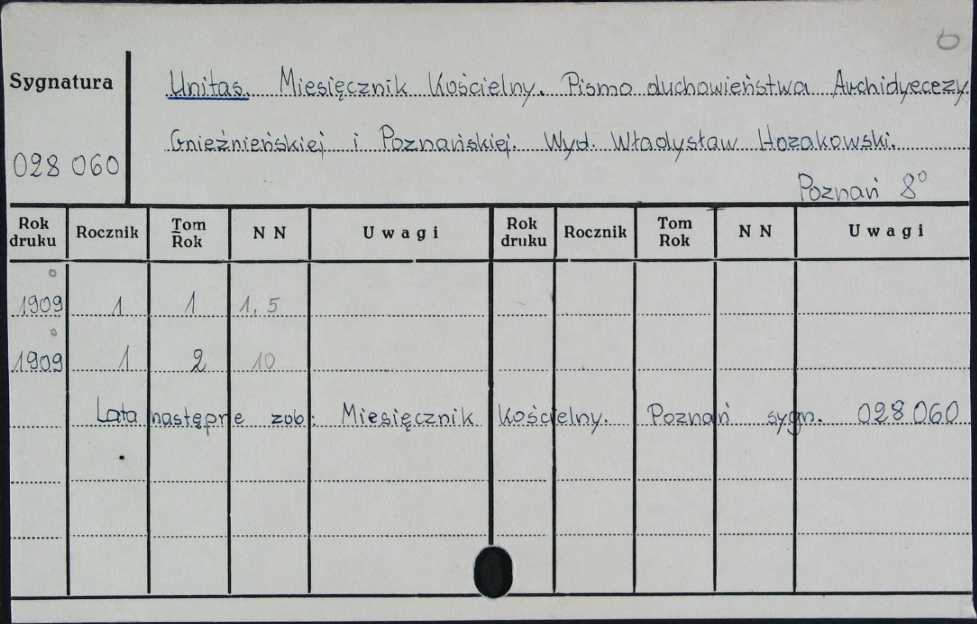 6
Sygnatura
Unitas. Miesięcznik Kościelny. Pismo duchowieństwa Archidyecezy.
Gnieźnieńskiej i Poznańskiej. Wyd. Władysław Hozakowski.
028 060
Poznań 8°
Rok druku Rocznik Tom Rok N N Uwagi Rok druku Rocznik Tom Rok N N Uwagi
1909 1 1 1, 5
1909 1 2 10
Lata następne zob: Miesięcznik Kościelny. Poznań sygn. 028060